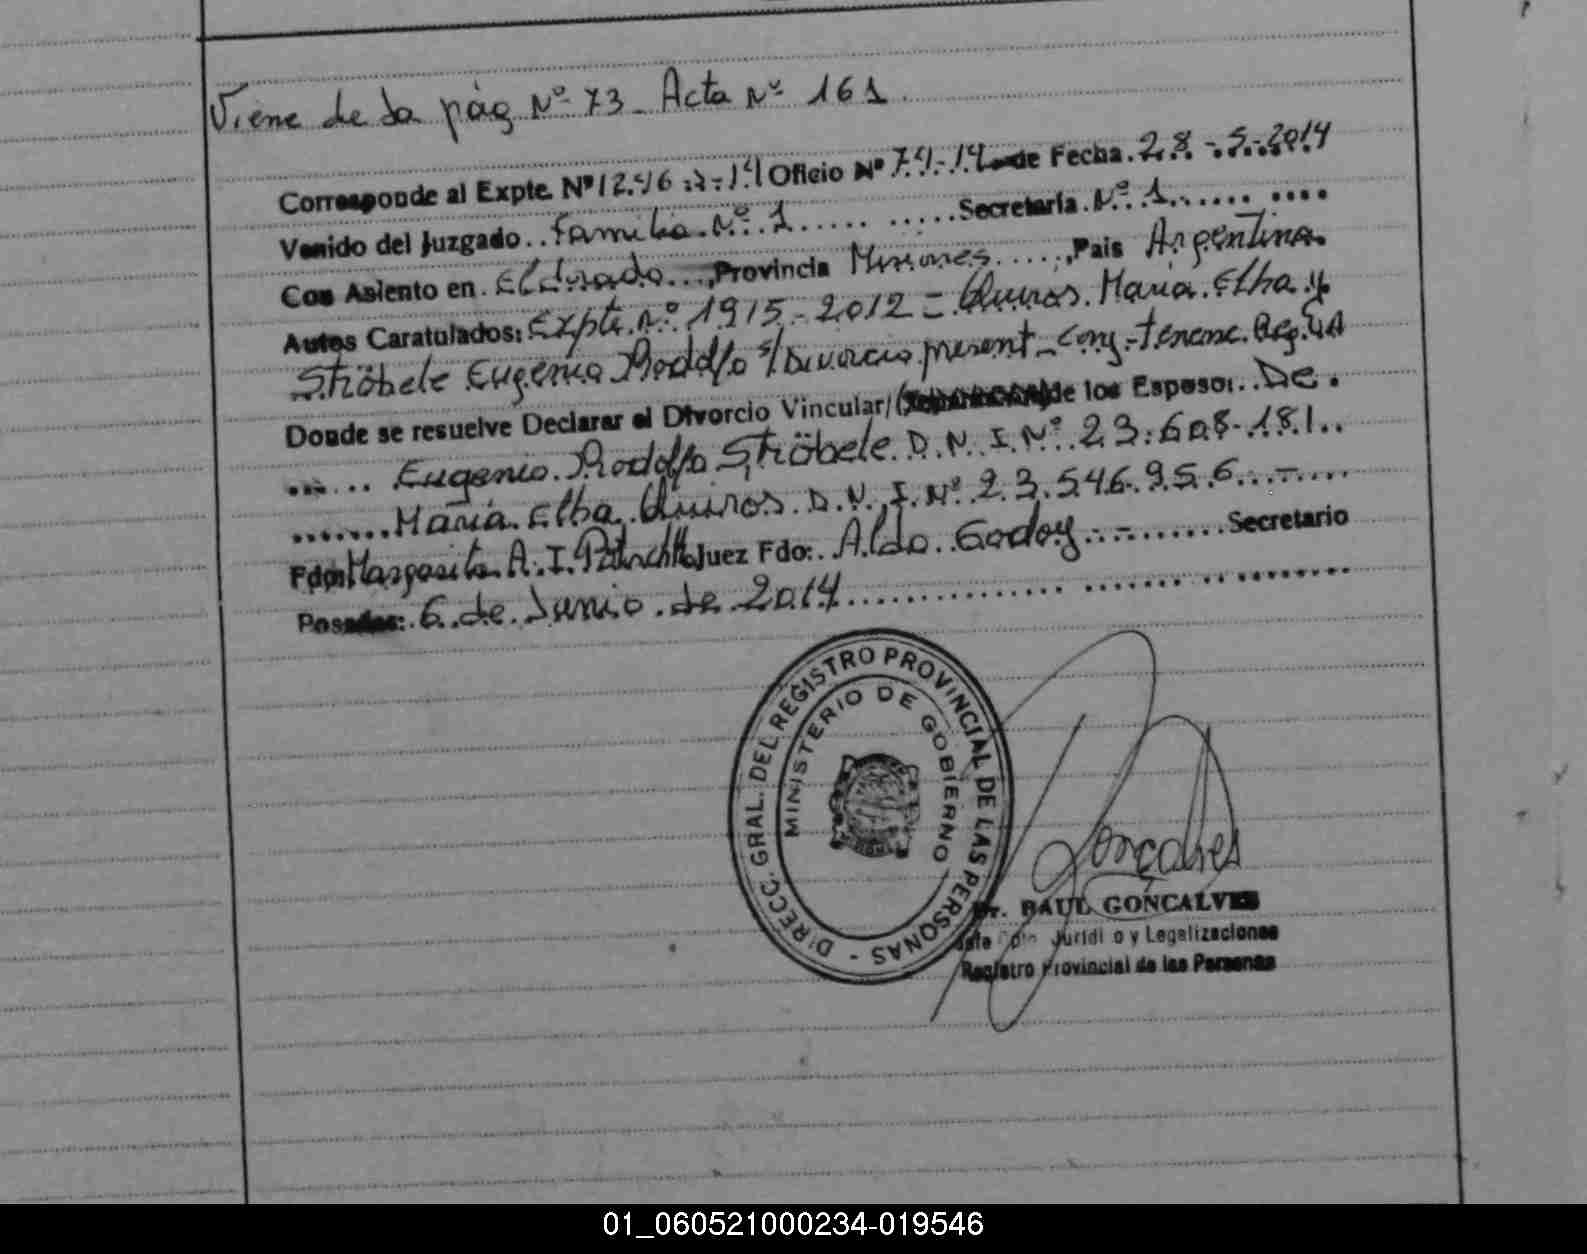 Viene de la pág Nº 73 - Acta Nº 161
Corresponde al Expte. Nº 1246 - 2 - 14 Oficio Nº 74 - 14 de Fecha 28 - 5 - 2014
Venido del Juzgado Familia Nº 1 Secretaría Nº 1
Con Asiento en Eldorado, Provincia Misiones, País Argentina
Autos Caratulados: Expte. Nº 1915 - 2012 = Quiros María Elba y
Ströbele Eugenio Rodolfo s/ Divorcio present. conj. tenenc. Reg.
Donde se resuelve Declarar el Divorcio Vincular/ de los Esposos: De
Eugenio Rodolfo Ströbele D.N.I. Nº 23.608.181
María Elba Quiros D.N.I. Nº 23.546.956 . -
Fdo: Margarita A. I. Juez Fdo: Aldo Godoy . - Secretario
Posadas: 6 de Junio de 2014
DIRECC. GRAL. DEL REGISTRO PROVINCIAL DE LAS PERSONAS -
MINISTERIO DE GOBIERNO
Gonçalves
Dr. RAUL GONÇALVES
Jefe Dpto Jurídico y Legalizaciones
Registro Provincial de las Personas
01_060521000234-019546